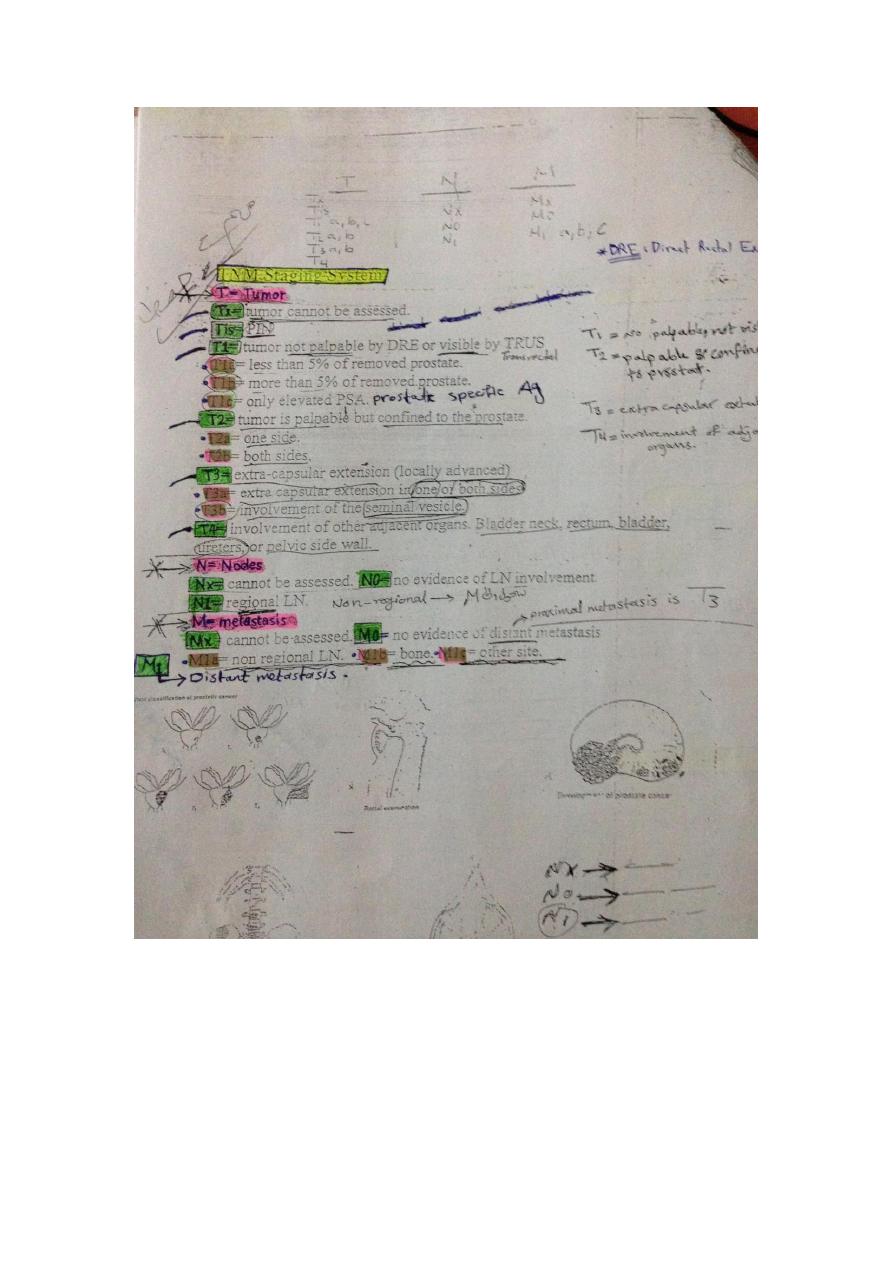 T N M
Tx Nx Mx
Tis N0 M0
T1 a, b, c N1 M1 a, b, c
T2 a, b
T3 a, b
T4
*DRE: Direct Rectal Ex
TNM Staging System
T= Tumor
Tx= tumor cannot be assessed.
Tis= PIN
T1= tumor not palpable by DRE or visible by TRUS
Transrectal
T1a= less than 5% of removed prostate.
T1b= more than 5% of removed prostate.
T1c= only elevated PSA. prostate specific Ag
T2= tumor is palpable but confined to the prostate.
T2a= one side.
T2b= both sides.
T3= extra-capsular extension (locally advanced)
T3a= extra capsular extension in one or both sides
T3b= involvement of the seminal vesicle.
T4= involvement of other adjacent organs. Bladder neck, rectum, bladder,
ureters, or pelvic side wall.
T1 = no palpable, not vis
T2 = palpable & confin
to prostat.
T3 = extra capsular exten
T4 = involvement of adja
organs.
N= Nodes
Nx= cannot be assessed. N0= no evidence of LN involvement.
N1= regional LN. Non-regional →
proximal metastasis is T3
M= metastasis
Mx cannot be assessed. M0= no evidence of distant metastasis
M1 • M1a= non regional LN. • M1b= bone. • M1c= other site.
Distant metastasis.
classification of prostatic cancer
Rectal examination
Development of prostate cancer
Nx →
N0 →
N1 →